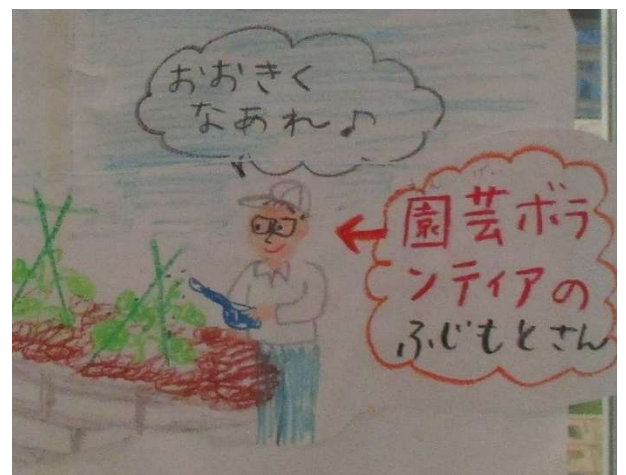 おおきく
なあれ♪
園芸ボラ
ンティアの
ふじもとさん